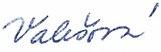 Valešová